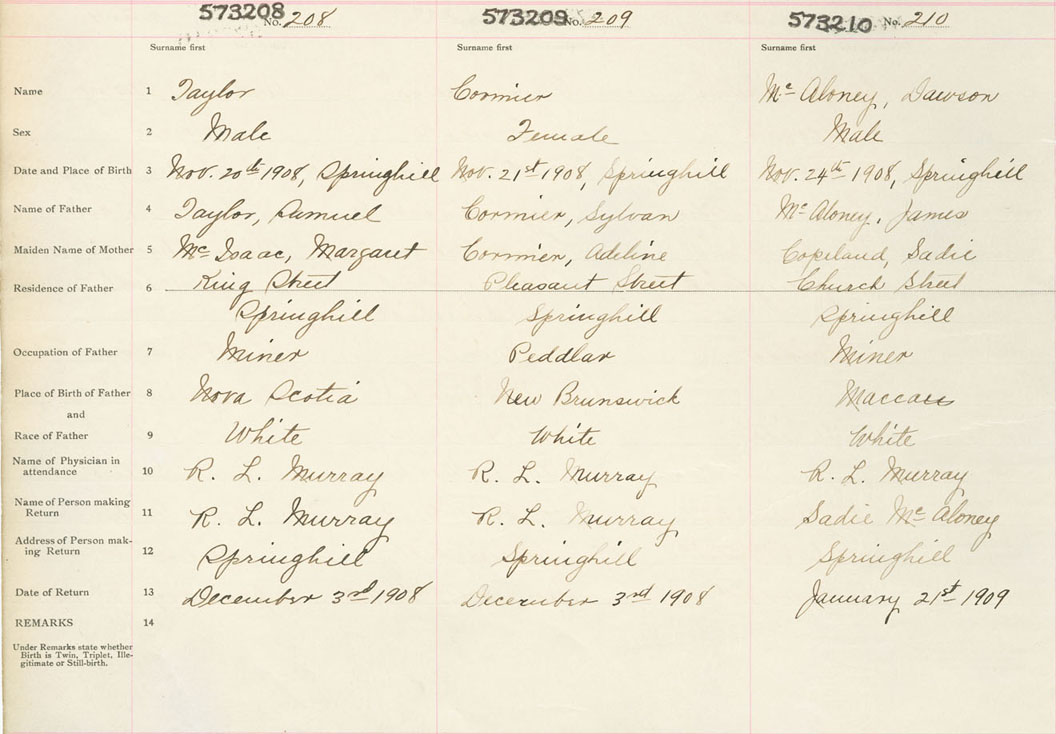 573208 No. 208 573209 No. 209 573210 No. 210
Surname first Surname first Surname first
Name 1 Taylor Cormier Mc Aloney, Dawson
Sex 2 Male Female Male
Date and Place of Birth 3 Nov. 20th 1908, Springhill Nov. 21st 1908, Springhill Nov. 24th 1908, Springhill
Name of Father 4 Taylor, Samuel Cormier, Sylvan Mc Aloney, James
Maiden Name of Mother 5 Mc Isaac, Margaret Cormier, Adeline Copeland, Sadie
King Street Pleasant Street Church Street
Residence of Father 6
Springhill Springhill Springhill
Occupation of Father 7 Miner Peddlar Miner
Place of Birth of Father 8 Nova Scotia New Brunswick Maccan
and
Race of Father 9 White White White
Name of Physician in
attendance 10 R. L. Murray R. L. Murray R. L. Murray
Name of Person making
Return 11 R. L. Murray R. L. Murray Sadie Mc Aloney
Address of Person mak-
ing Return 12 Springhill Springhill Springhill
Date of Return 13 December 3rd 1908 December 3rd 1908 January 21st 1909
REMARKS 14
Under Remarks state whether
Birth is Twin, Triplet, Ille-
gitimate or Still-birth.